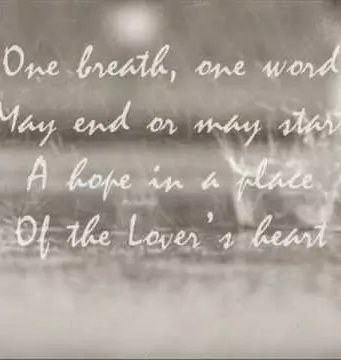 One breath, one word
May end or may star
A hope in a place
Of the Lover's heart